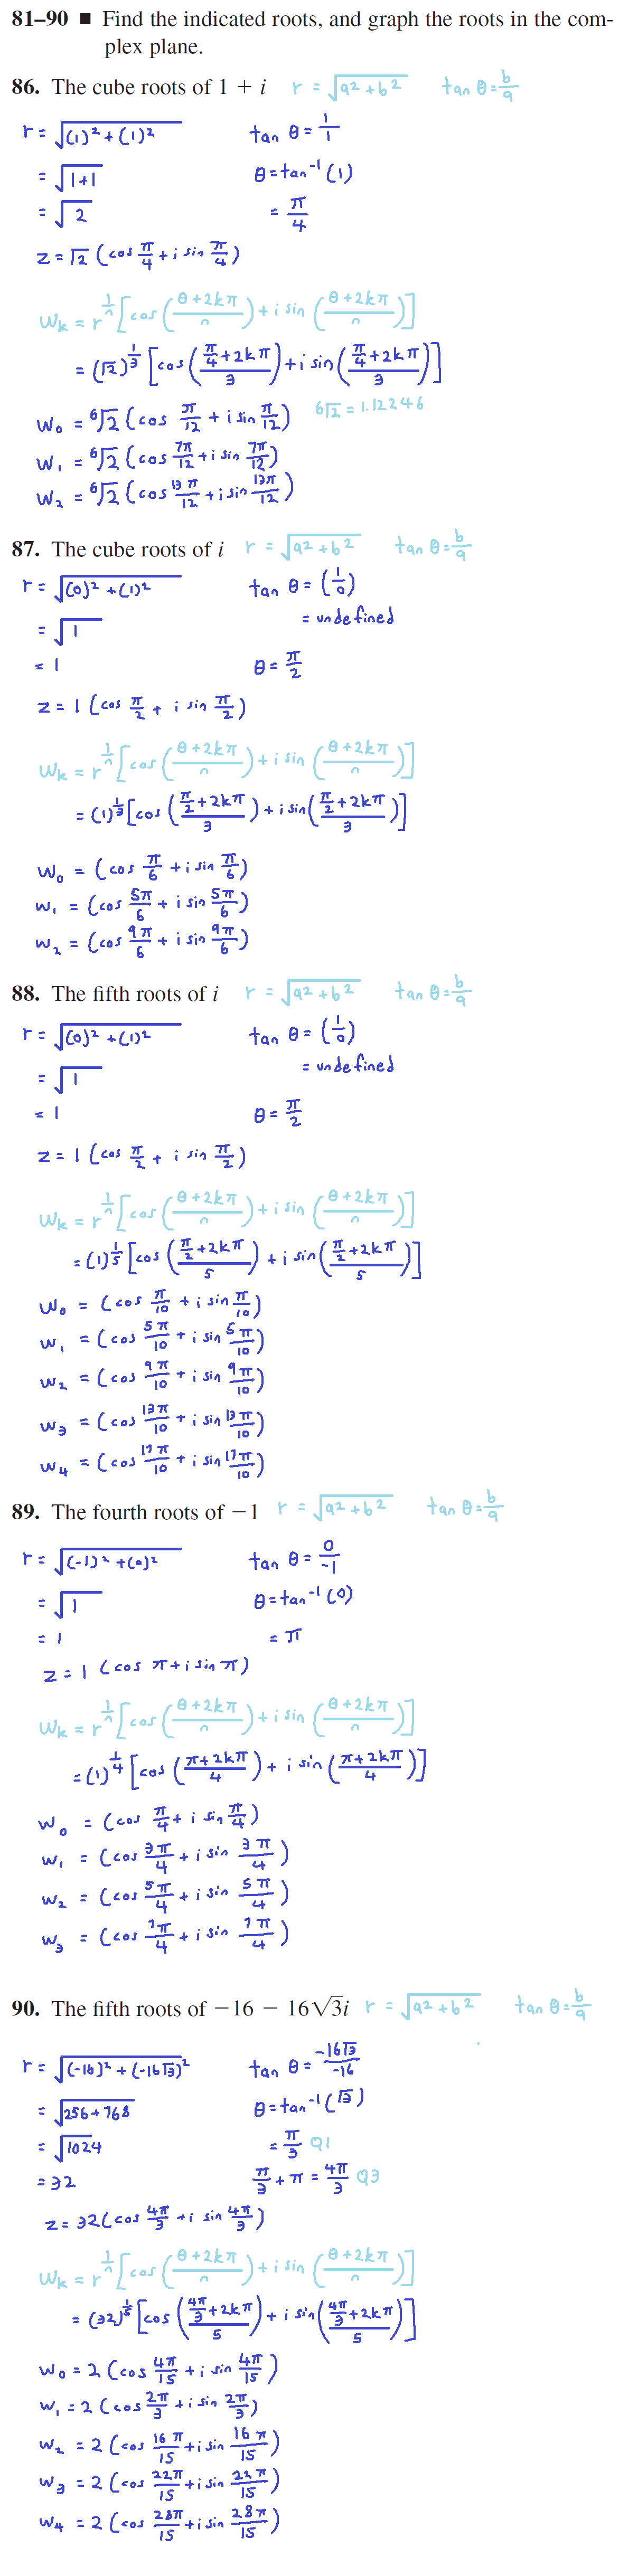 81–90 ■ Find the indicated roots, and graph the roots in the com-
plex plane.
86. The cube roots of 1 + i r = √(a² + b²) tan θ = b/a
r = √((1)² + (1)²) tan θ = 1/1
= √(1+1) θ = tan⁻¹ (1)
= √2 = π/4
z = √2 (cos π/4 + i sin π/4)
Wk = r^(1/n) [cos ((θ + 2kπ)/n) + i sin ((θ + 2kπ)/n)]
= (√2)^(1/3) [cos ((π/4 + 2kπ)/3) + i sin ((π/4 + 2kπ)/3)]
W₀ = ⁶√2 (cos π/12 + i sin π/12) 6√2 = 1.12246
W₁ = ⁶√2 (cos 7π/12 + i sin 7π/12)
W₂ = ⁶√2 (cos 13π/12 + i sin 13π/12)
87. The cube roots of i r = √(a² + b²) tan θ = b/a
r = √((0)² + (1)²) tan θ = (1/0)
= √1 = undefined
= 1 θ = π/2
z = 1 (cos π/2 + i sin π/2)
Wk = r^(1/n) [cos ((θ + 2kπ)/n) + i sin ((θ + 2kπ)/n)]
= (1)^(1/3) [cos ((π/2 + 2kπ)/3) + i sin ((π/2 + 2kπ)/3)]
W₀ = (cos π/6 + i sin π/6)
W₁ = (cos 5π/6 + i sin 5π/6)
W₂ = (cos 9π/6 + i sin 9π/6)
88. The fifth roots of i r = √(a² + b²) tan θ = b/a
r = √((0)² + (1)²) tan θ = (1/0)
= √1 = undefined
= 1 θ = π/2
z = 1 (cos π/2 + i sin π/2)
Wk = r^(1/n) [cos ((θ + 2kπ)/n) + i sin ((θ + 2kπ)/n)]
= (1)^(1/5) [cos ((π/2 + 2kπ)/5) + i sin ((π/2 + 2kπ)/5)]
W₀ = (cos π/10 + i sin π/10)
W₁ = (cos 5π/10 + i sin 5π/10)
W₂ = (cos 9π/10 + i sin 9π/10)
W₃ = (cos 13π/10 + i sin 13π/10)
W₄ = (cos 17π/10 + i sin 17π/10)
89. The fourth roots of −1 r = √(a² + b²) tan θ = b/a
r = √((-1)² + (0)²) tan θ = 0/-1
= √1 θ = tan⁻¹ (0)
= 1 = π
z = 1 (cos π + i sin π)
Wk = r^(1/n) [cos ((θ + 2kπ)/n) + i sin ((θ + 2kπ)/n)]
= (1)^(1/4) [cos ((π + 2kπ)/4) + i sin ((π + 2kπ)/4)]
W₀ = (cos π/4 + i sin π/4)
W₁ = (cos 3π/4 + i sin 3π/4)
W₂ = (cos 5π/4 + i sin 5π/4)
W₃ = (cos 7π/4 + i sin 7π/4)
90. The fifth roots of −16 − 16√3i r = √(a² + b²) tan θ = b/a
r = √((-16)² + (-16√3)²) tan θ = -16√3/-16
= √(256 + 768) θ = tan⁻¹ (√3)
= √1024 = π/3 Q1
= 32 π/3 + π = 4π/3 Q3
z = 32 (cos 4π/3 + i sin 4π/3)
Wk = r^(1/n) [cos ((θ + 2kπ)/n) + i sin ((θ + 2kπ)/n)]
= (32)^(1/5) [cos ((4π/3 + 2kπ)/5) + i sin ((4π/3 + 2kπ)/5)]
W₀ = 2 (cos 4π/15 + i sin 4π/15)
W₁ = 2 (cos 2π/3 + i sin 2π/3)
W₂ = 2 (cos 16π/15 + i sin 16π/15)
W₃ = 2 (cos 22π/15 + i sin 22π/15)
W₄ = 2 (cos 28π/15 + i sin 28π/15)